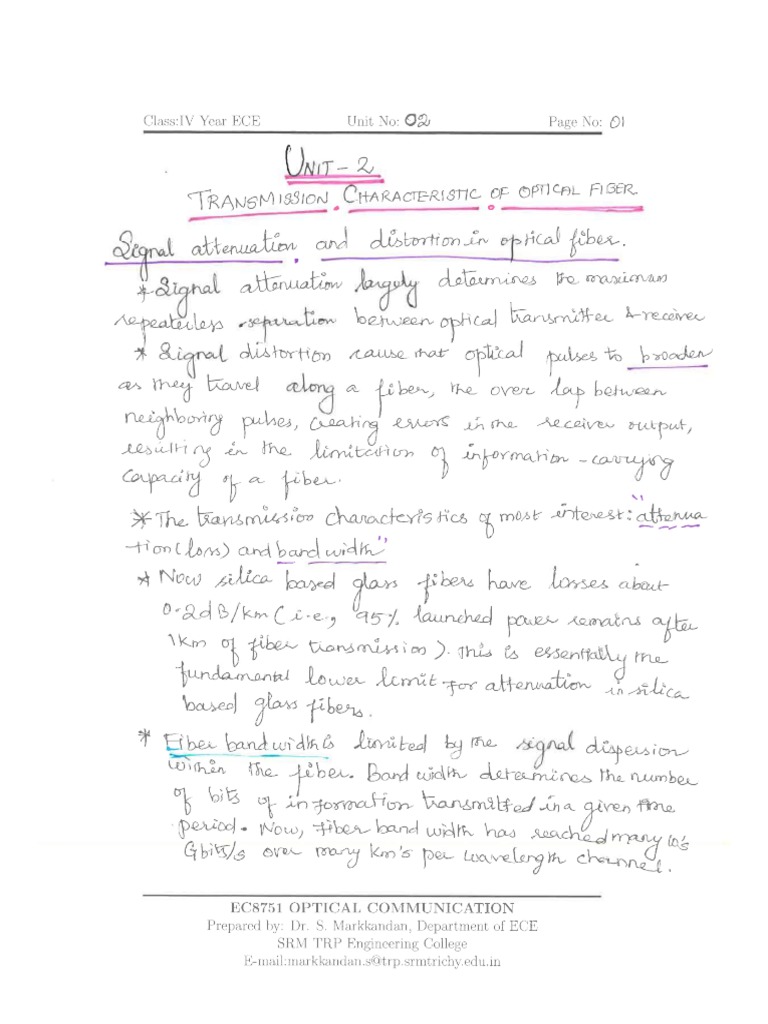 Class:IV Year ECE Unit No: 02 Page No: 01
UNIT-2
TRANSMISSION CHARACTERISTIC OF OPTICAL FIBER
Signal attenuation and distortion in optical fiber.
* Signal attenuation largely determines the maximum
repeaterless separation between optical transmitter & receiver
* Signal distortion cause that optical pulses to broaden
as they travel along a fiber, the over lap between
neighboring pulses, creating errors in the receiver output,
resulting in the limitation of information-carrying
capacity of a fiber.
* The transmission characteristics of most interest: "attenua
-tion (loss) and bandwidth"
* Now silica based glass fibers have losses about
0.2dB/km (i.e., 95% launched power remains after
1km of fiber transmission). This is essentially the
fundamental lower limit for attenuation in silica
based glass fibers.
* Fiber bandwidth is limited by the signal dispersion
within the fiber. Bandwidth determines the number
of bits of information transmitted in a given time
period. Now, fiber bandwidth has reached many 10's
Gbits/s over many km's per wavelength channel.
EC8751 OPTICAL COMMUNICATION
Prepared by: Dr. S. Markkandan, Department of ECE
SRM TRP Engineering College
E-mail:markkandan.s@trp.srmtrichy.edu.in